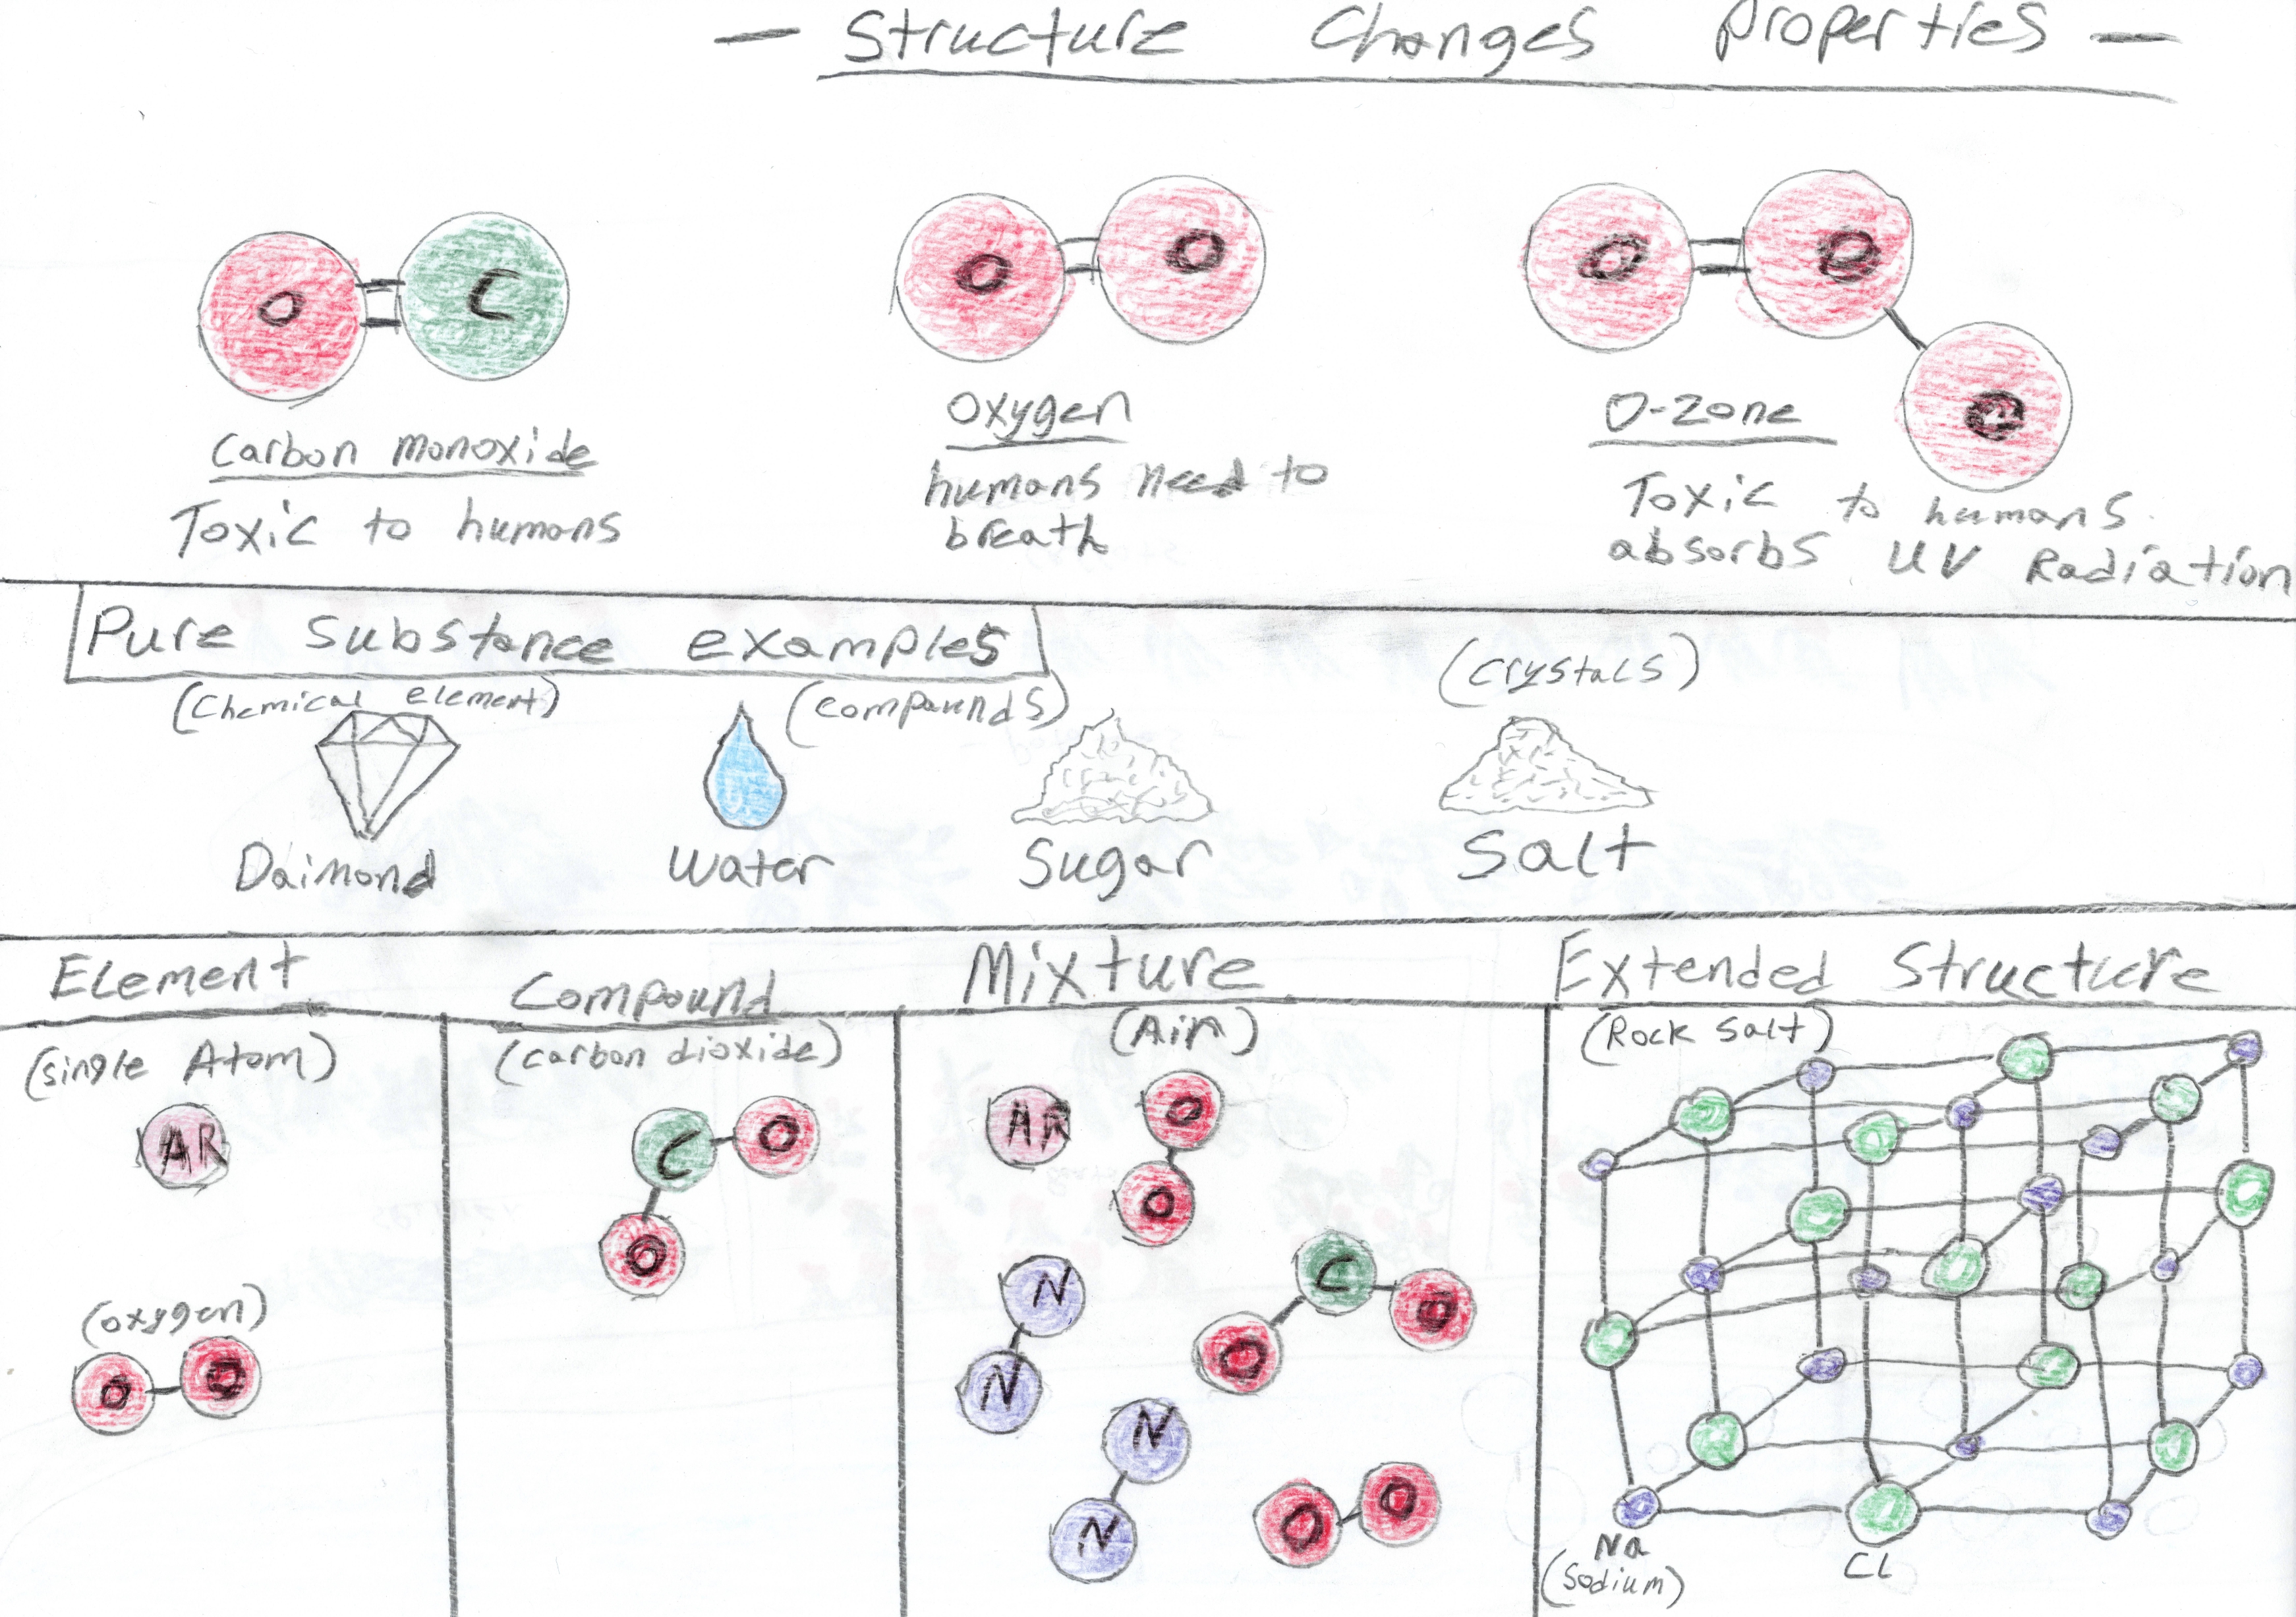 — Structure Changes Properties —
O
C
O
O
O
O
O
Carbon monoxide
Toxic to humans
Oxygen
humans need to
breath
O-Zone
Toxic to humans.
absorbs UV Radiation
Pure Substance examples
(Chemical element)
(compounds)
(Crystals)
Daimond
Water
Sugar
Salt
Element
(single Atom)
AR
(oxygen)
O
O
Compound
(carbon dioxide)
C
O
O
Mixture
(Air)
AR
O
O
N
N
C
O
O
N
N
O
O
Extended Structure
(Rock Salt)
Na
(Sodium)
Cl